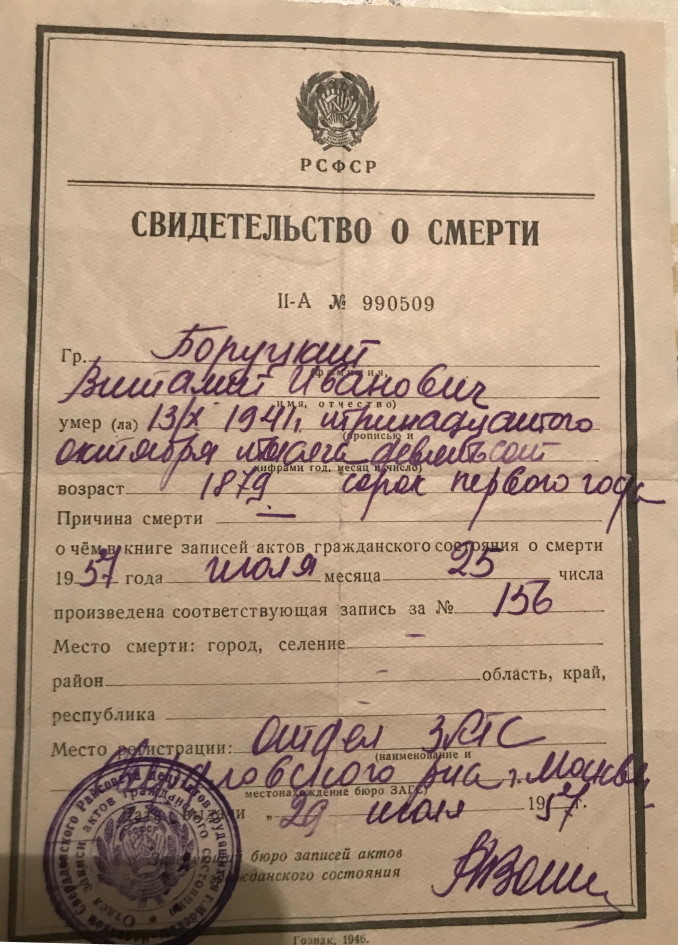 РСФСР
СВИДЕТЕЛЬСТВО О СМЕРТИ
II-А № 990509
Гр. Боруцкий
(фамилия,
Виталий Иванович
имя, отчество)
умер (ла) 13/X 1941г. тринадцатого
(прописью и
октября тысяча девятьсот
цифрами год, месяц и число)
возраст 1879 сорок первого года
Причина смерти —
о чём в книге записей актов гражданского состояния о смерти
1957 года июля месяца 25 числа
произведена соответствующая запись за № 156
Место смерти: город, селение —
район — область, край,
республика —
Место регистрации: отдел ЗАГС
(наименование и
Свердловского р-на г. Москвы
местонахождение бюро ЗАГС)
Дата выдачи „29 июля 1957 г.
бюро записей актов
гражданского состояния
Свердловского Райсовета депутатов трудящихся г. Москвы
Отдел записи актов гражданского состояния
РСФСР
Гознак. 1946.